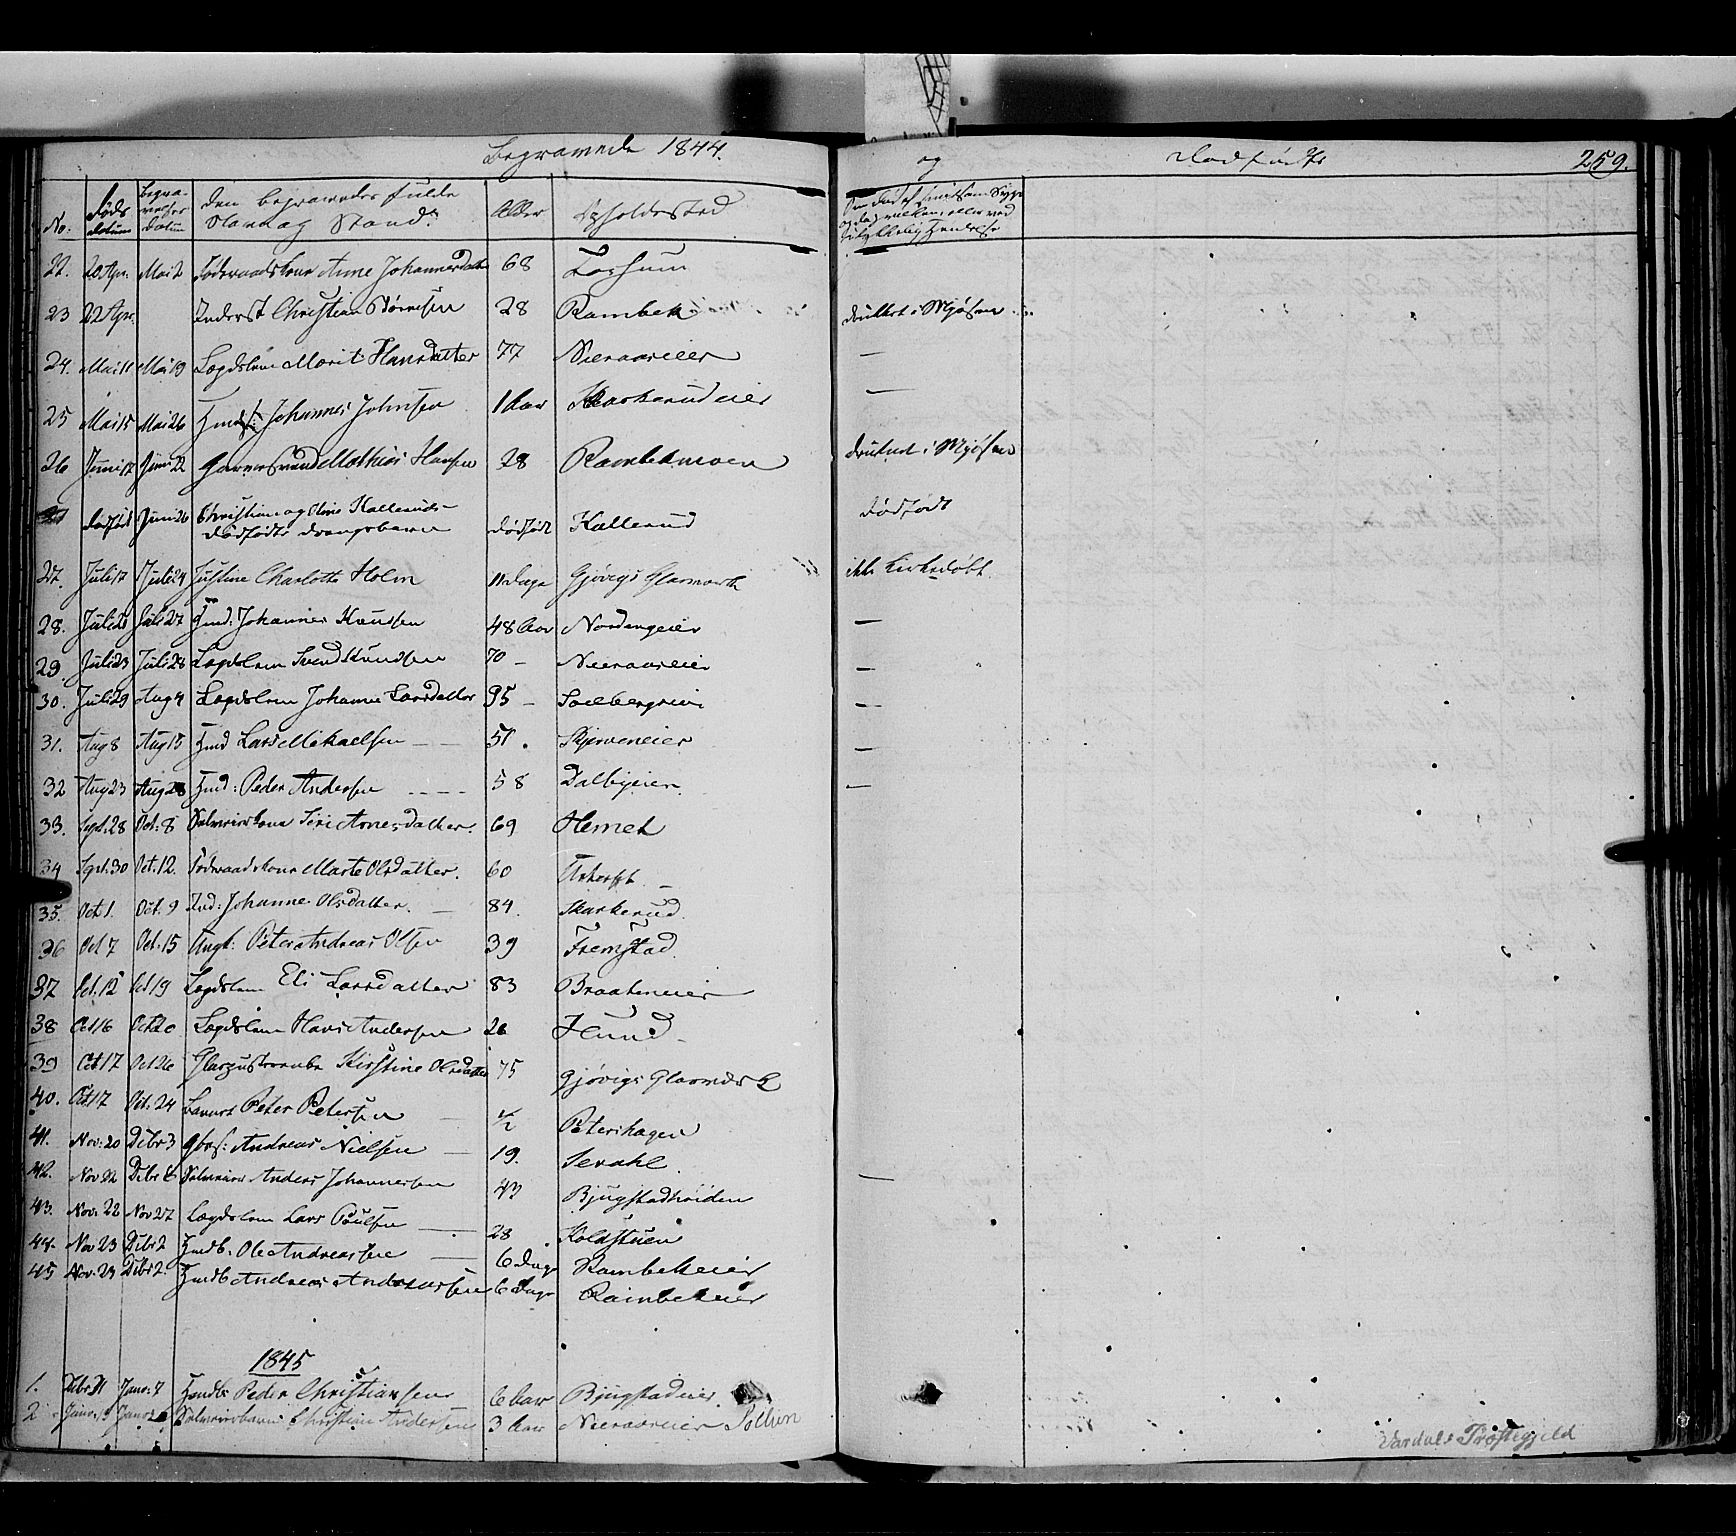 Begravede 1844.
og Dodfødte 259.
No. Døds datum Begravelses datum Den begravedes fulde Navn og Stand. Alder Opholdssted
22. 20 Apr. Mai 2 Føderaadskone Anne Johannesdatter 68
23 22 Apr. Inderst Christian Størensen 28 Rambek druknet i Mjøsen
24. Mai 11 Mai 19 Lægdslem Marit Hansdatter 77 Nieraaseier —
25 Mai 15 Mai 26 Johannes Johnsen 1 Aar Skarkerudeier —
26 Juni 17 Juni 22 Mathias Hansen 28 Rambekmoen druknet i Mjøsen
dødfødt Juni 26 Christian og Kallerud-
dødfødte drengebarn dødfødt Kallerud Dødfødt
27. Juli 17 Juli 24 Justine Charlotte Holm 11 Dage Gjøvigs Glasværk ikke kirkedøbt.
28. Juli 20 Juli 27 Hmd: Johannes Knudsen 48 Aar Nordengeier —
29. Juli 23 Juli 28 Lægdslem Svend Knudsen 70 — Nieraaseier —
30. Juli 29 Aug 4 Lægdslem Johanne Larsdatter 95 — Solbergseie —
31. Aug 8 Aug 15 Hmd Lars Mikaelsen — 51. Skjerveneier —
32 Aug 23 Aug 28 Hmd: Peder Andersen 58 Dalbyeier —
33. Sept. 28 Oct: 8 Selveierkone Siri Arnesdatter. 69 Hernet
34 Sept. 30 Oct. 12. Føderaadskone Marte Olsdatter. 60
35. Oct 1. Oct. 9 Ind: Johanne Olsdatter. — 84. Skarkerud.
36 Oct 7 Oct. 15 Ungk: Peter Andreas Olsen 39 Fremstad.
37 Oct. 12 Oct 19 Lægdslem Eli Larsdatter 83 Braateneier
38 Oct 16 Oct 20 Lægdslem Hans Andersen 26 Hund
39 Oct 17 Oct 26 Kirstine Olsdatter 75 Gjøvigs Glasværk
40. Oct 17 Oct. 24 Barnet Peter Petersen — ½ Petershagen
41. Nov: 20 Debr 3 Gbrs: Andreas Nielsen — 19.
42. Nov 22 Debr 6 Selveier Anders Johannesen 43 Bjugstadhøiden —
43. Nov: 22 Nov 27 Lægdslem Lars Poulsen — 28 Koldstuen
44. Nov 23 Debr 2 Hmdb: Ole Andreassen — 6 Dage Rambekeier
45 Nov. 23 Debr 2. Hmdb Andreas Andreassen 6 Dage Rambekeier
1845
1. Debr 31 Janr: 7 Hmdb: Peder Christiansen 6 Aar Bjugstadeier.
2 Janr: 13 Selveierbarn Christian Andersen 3 Aar Nieraaseier
Vardals Præstegjeld